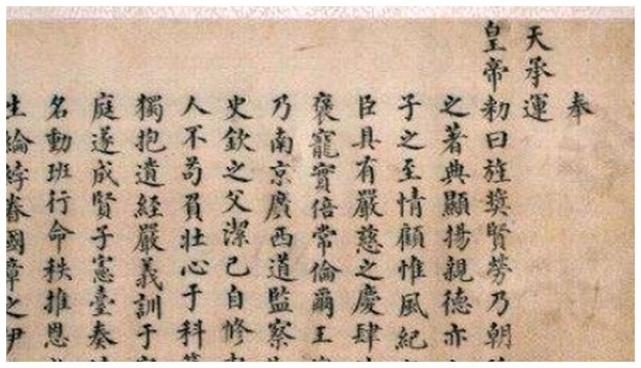 奉
天承運
皇帝勑曰旌奬賢勞乃朝
之著典顯揚親德亦
子之至情顧惟風紀
臣具有嚴慈之慶肆
褒寵實倍常倫爾王
乃南京廣西道監察
史欽之父潔己自修
人不苟負壯心于科
獨抱遺經嚴義訓于
庭遂成賢子憲臺奏
名動班行命秩推恩
生綸綍眷國章之